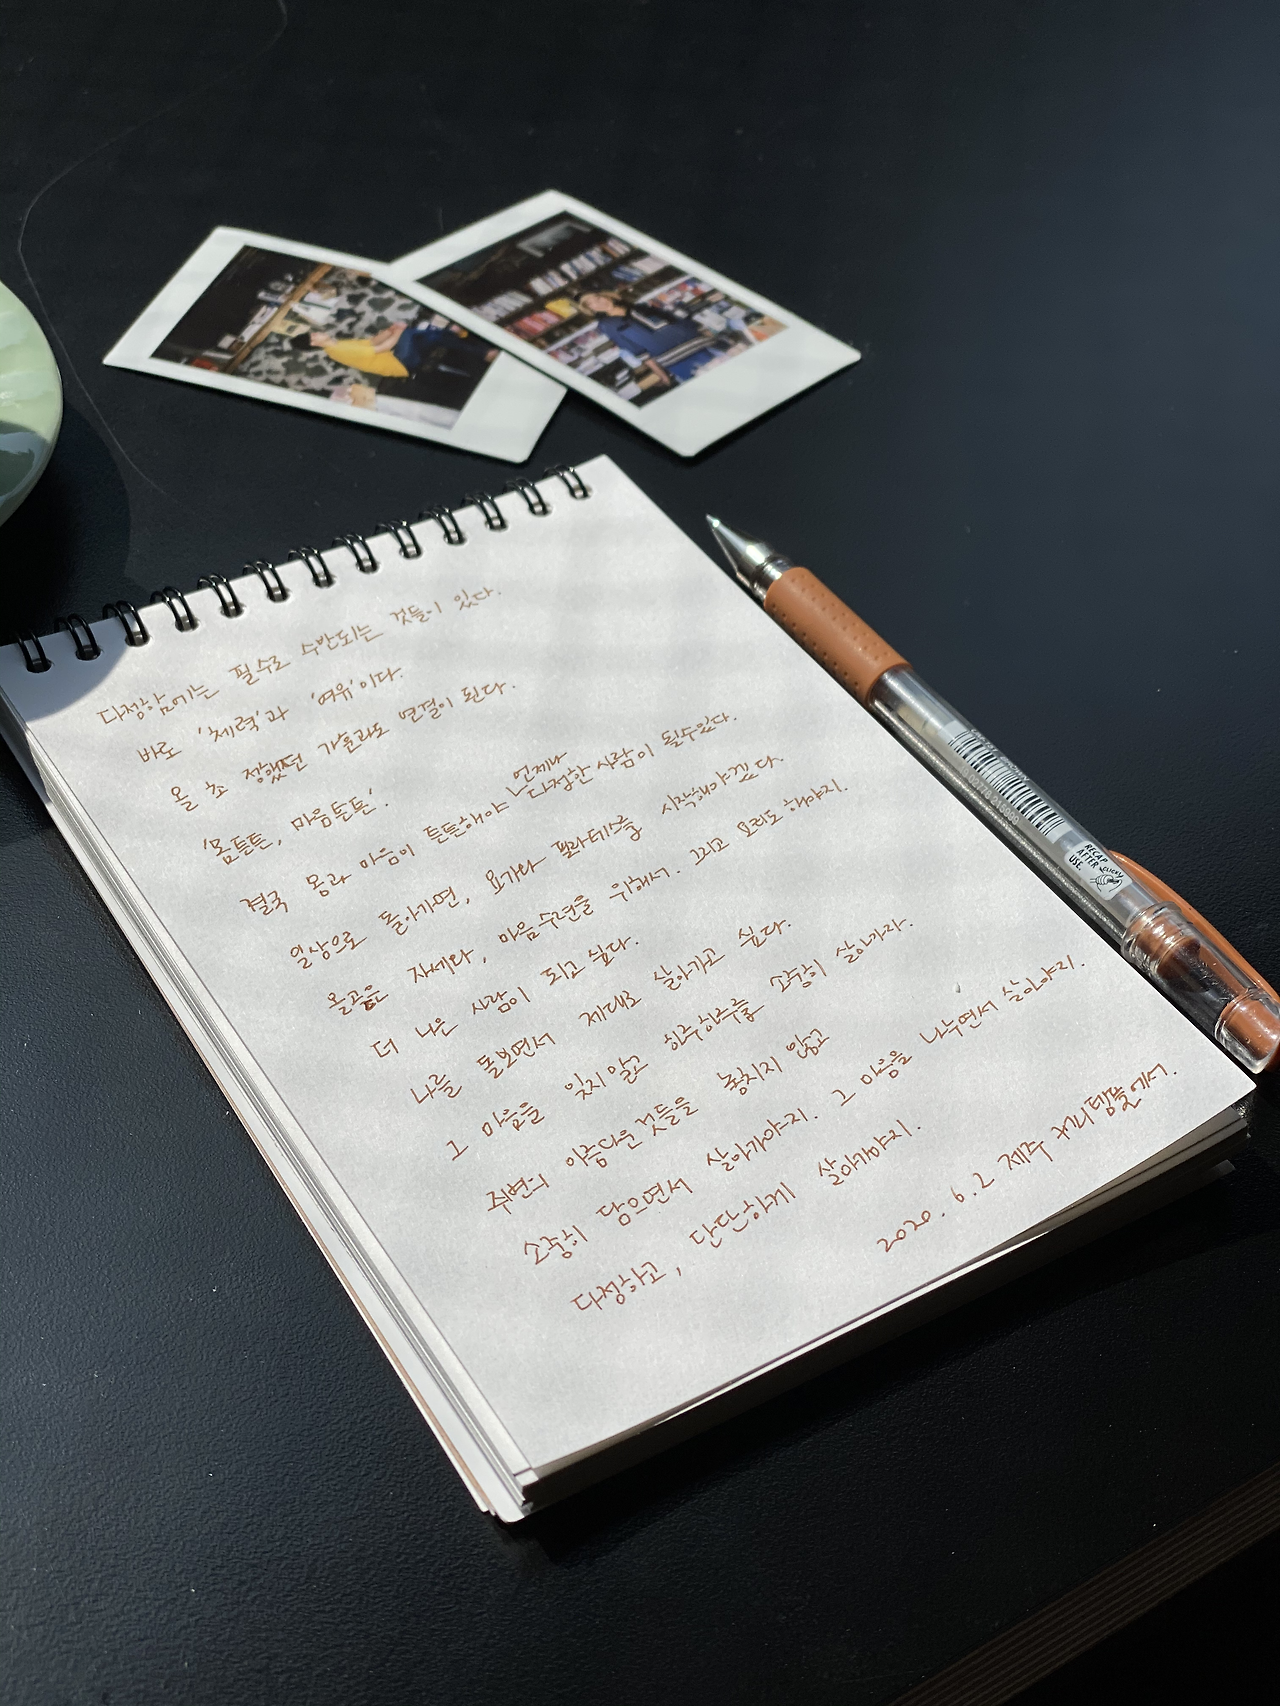 다정함에는 필수로 수반되는 것들이 있다.
바로 '체력'과 '여유'이다.
올 초 정했던 가훈과도 연결이 된다.
'몸튼튼, 마음튼튼'.
결국 몸과 마음이 튼튼해야 언제나 다정한 사람이 될수있다.
일상으로 돌아가면, 요가와 필라테스를 시작해야겠다.
올곧은 자세와, 마음수련을 위해서. 그리고 요리도 해야지.
더 나은 사람이 되고싶다.
나를 돌보면서 제대로 살아가고 싶다.
그 마음을 잊지않고 하루하루를 소중히 살아가자.
주변의 아름다운것들을 놓치지 않고
소중히 담으면서 살아가야지. 그 마음을 나누면서 살아야지.
다정하고, 단단하게 살아가야지.
2020. 6. 2 제주 에서.
RECAP
AFTER
USE.
CLICK!